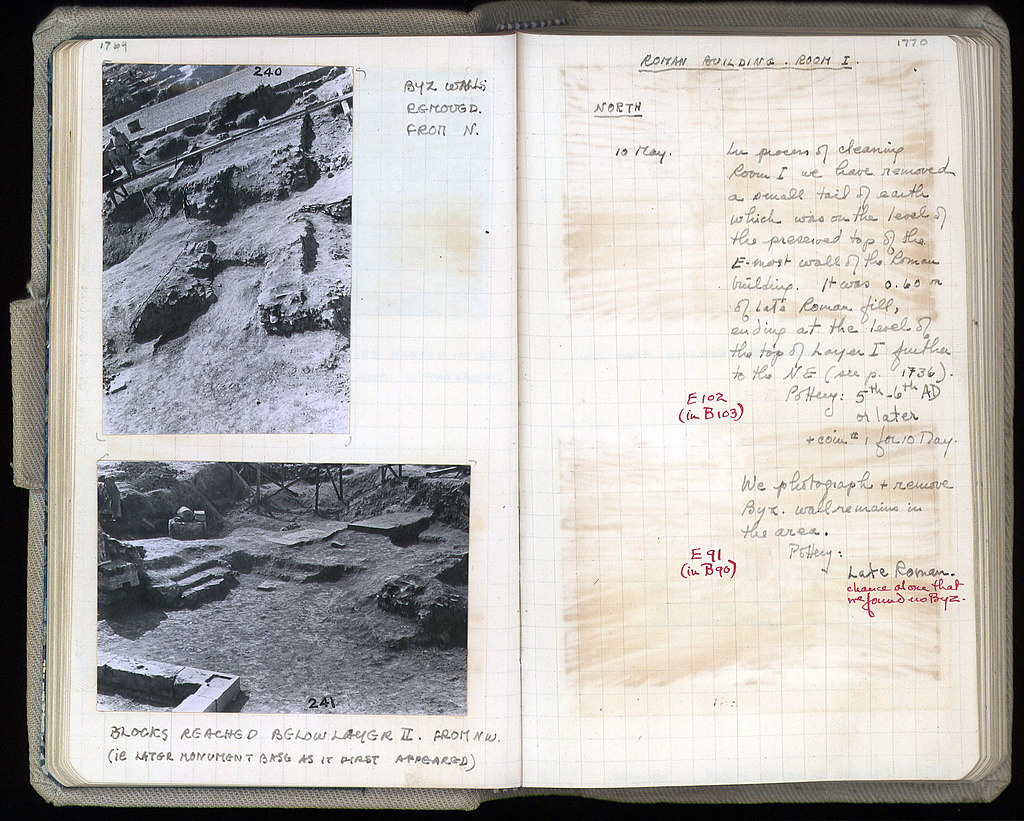 1769
240
BYZ WALLS
REMOVED.
FROM N.
241
BLOCKS REACHED BELOW LAYER II. FROM NW.
(IE LATER MONUMENT BASE AS IT FIRST APPEARED)
1770
ROMAN BUILDING. ROOM I.
NORTH
10 May.
In process of cleaning
Room I we have removed
a small tail of earth
which was on the level of
the preserved top of the
E-most wall of the Roman
building. It was 0.60 m
of late Roman fill,
ending at the level of
the top of Layer I further
to the NE (see p. 1736).
Pottery: 5th-6th AD
E102
(in B103)
or later
+ coin # 1 for 10 May.
We photograph + remove
Byz. wall remains in
the area.
Pottery:
E91
(in B90)
Late Roman.
chance alone that
we found no Byz.